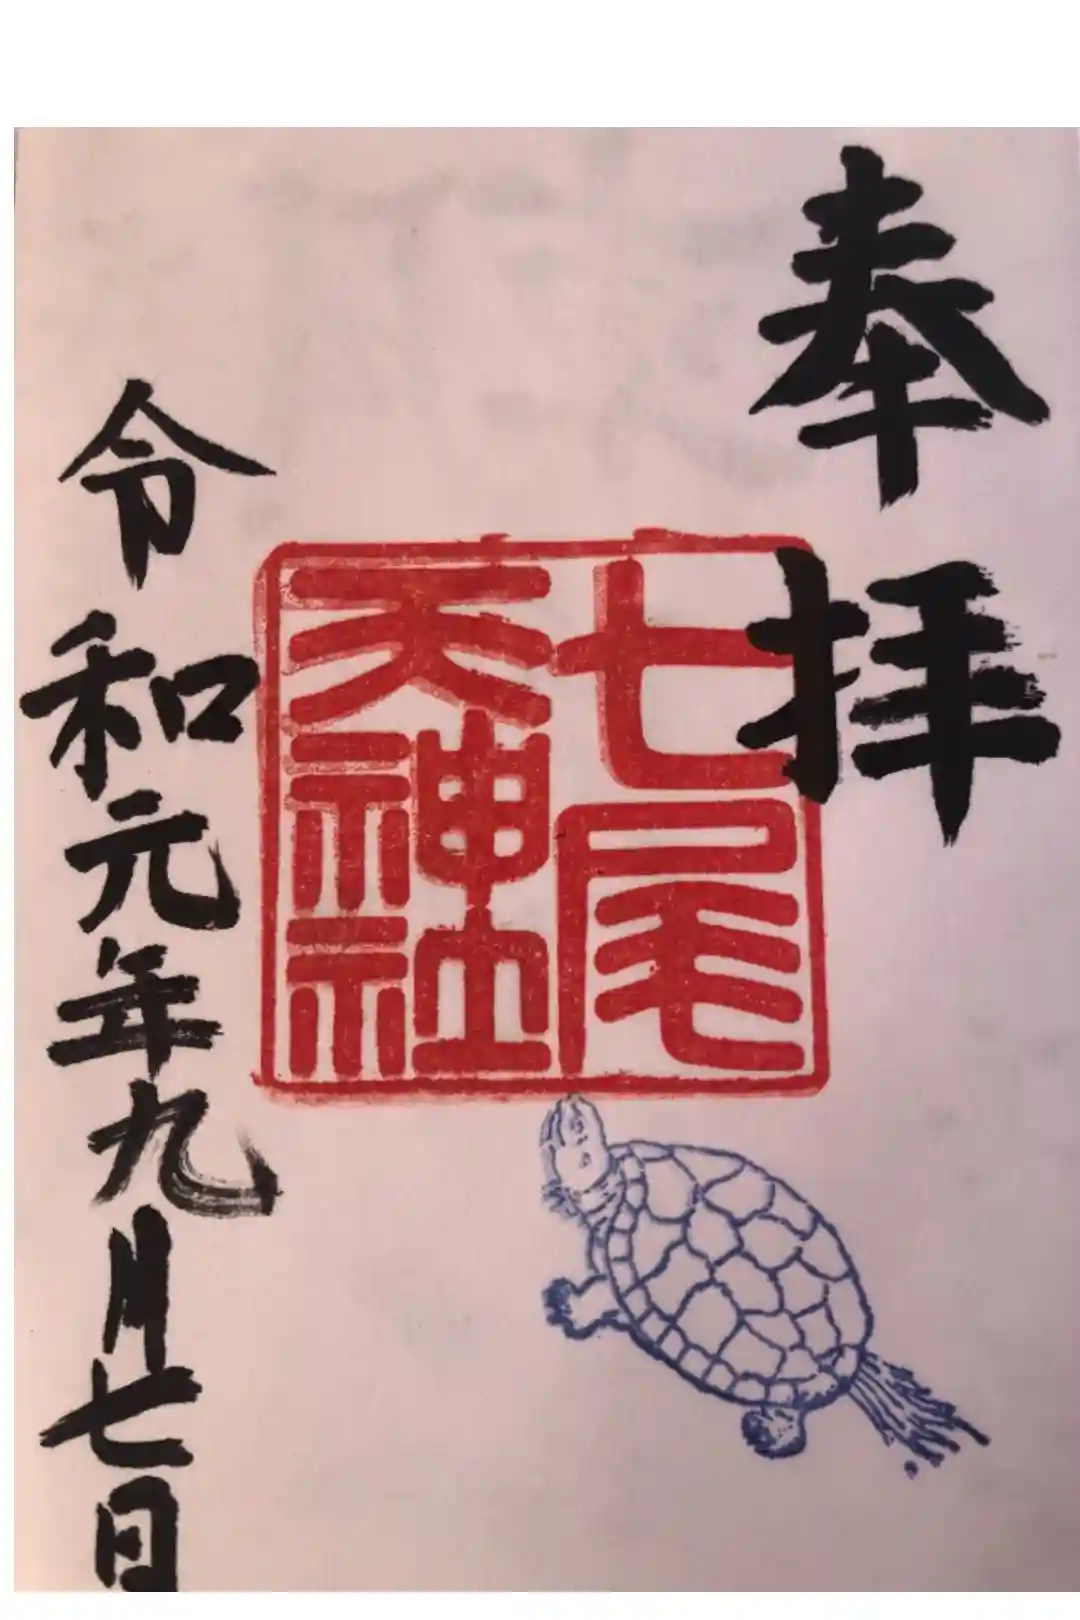 奉拝
七尾
天神社
令和元年九月七日